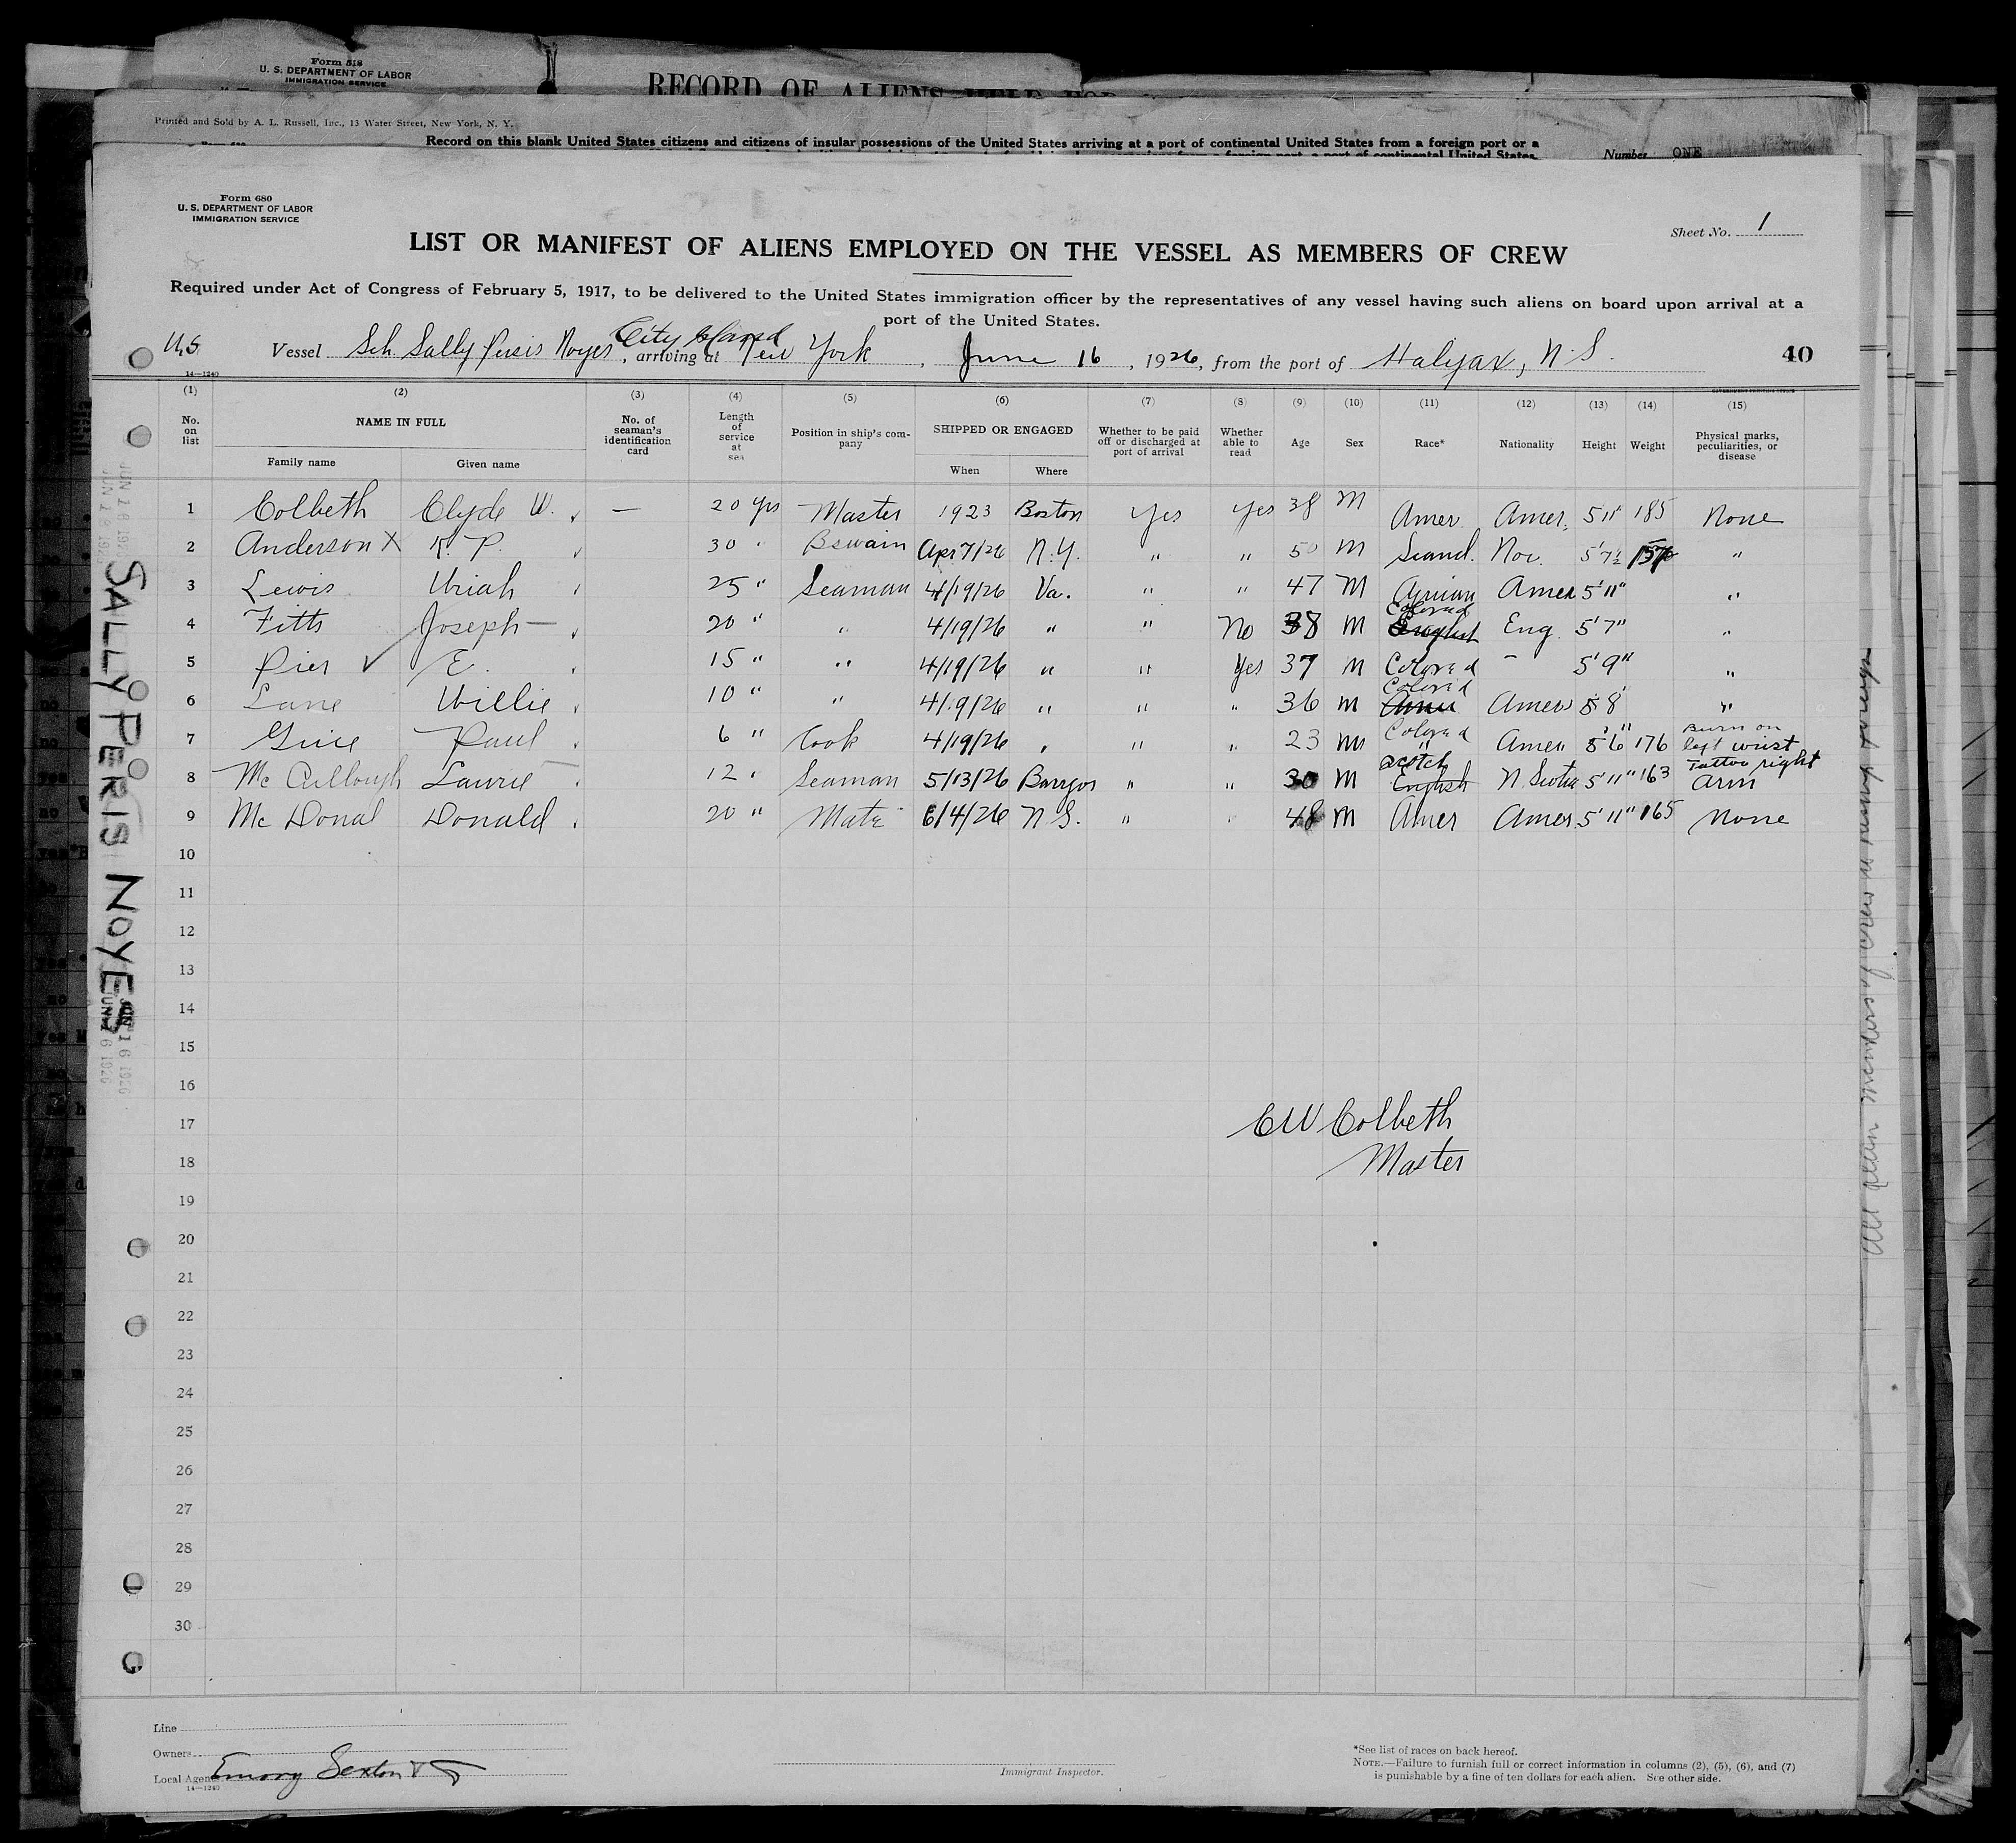 Form 518
U. S. DEPARTMENT OF LABOR
IMMIGRATION SERVICE
RECORD OF ALIENS HELD FOR
Printed and Sold by A. L. Russell, Inc., 13 Water Street, New York, N. Y.
Record on this blank United States citizens and citizens of insular possessions of the United States arriving at a port of continental United States from a foreign port or a
Number ONE
Form 680
U. S. DEPARTMENT OF LABOR
IMMIGRATION SERVICE
Sheet No. 1
LIST OR MANIFEST OF ALIENS EMPLOYED ON THE VESSEL AS MEMBERS OF CREW
Required under Act of Congress of February 5, 1917, to be delivered to the United States immigration officer by the representatives of any vessel having such aliens on board upon arrival at a
port of the United States.
City Island
US Vessel Sch Sally Persis Noyes, arriving at New York, June 16, 1926, from the port of Halifax, N.S. 40
14—1240
(1) (2) (3) (4) (5) (6) (7) (8) (9) (10) (11) (12) (13) (14) (15)
No. on list NAME IN FULL Family name Given name No. of seaman's identification card Length of service at sea Position in ship's company SHIPPED OR ENGAGED When Where Whether to be paid off or discharged at port of arrival Whether able to read Age Sex Race* Nationality Height Weight Physical marks, peculiarities, or disease
1 Colbeth Clyde W. — 20 yrs Master 1923 Boston Yes Yes 38 M Amer Amer. 5 11 185 None
2 Anderson X K. P. 30 " Bswain Apr 7/26 N.Y. " " 50 M Scand. Nor. 5'7½ "
3 Lewis Uriah 25 " Seaman 4/19/26 Va. " " 47 M Amer 5'11" "
4 Fitts Joseph 20 " " 4/19/26 " " No 38 M Colored English Eng. 5'7" "
5 Pier ✓ E. 15 " " 4/19/26 " " Yes 37 M Colored - 5'9" "
6 Lane Willie 10 " " 4/19/26 " " " 36 M Colored Amer Amer 5'8 "
7 Guie Paul 6 " Cook 4/19/26 " " " 23 M Colored " Amer 5'6" 176 Burn on left wrist
8 McCullough Laurie 12 " Seaman 5/13/26 " " 30 M Scotch English N. Scotia 5'11" 163 Tattoo right arm
9 McDonal Donald 20 " Mate 6/4/26 N.S. " " 48 M Amer Amer 5'11" 165 None
10
11
12
13
14
15
16
17
18
19
20
21
22
23
24
25
26
27
28
29
30
CW Colbeth
Master
SALLY PERIS NOYES
JUN 16 1926
JUN 16 1926
Line
Owners
Local Agent Emory Sexton
14—1240
Immigrant Inspector.
*See list of races on back hereof.
NOTE.—Failure to furnish full or correct information in columns (2), (5), (6), and (7)
is punishable by a fine of ten dollars for each alien. See other side.